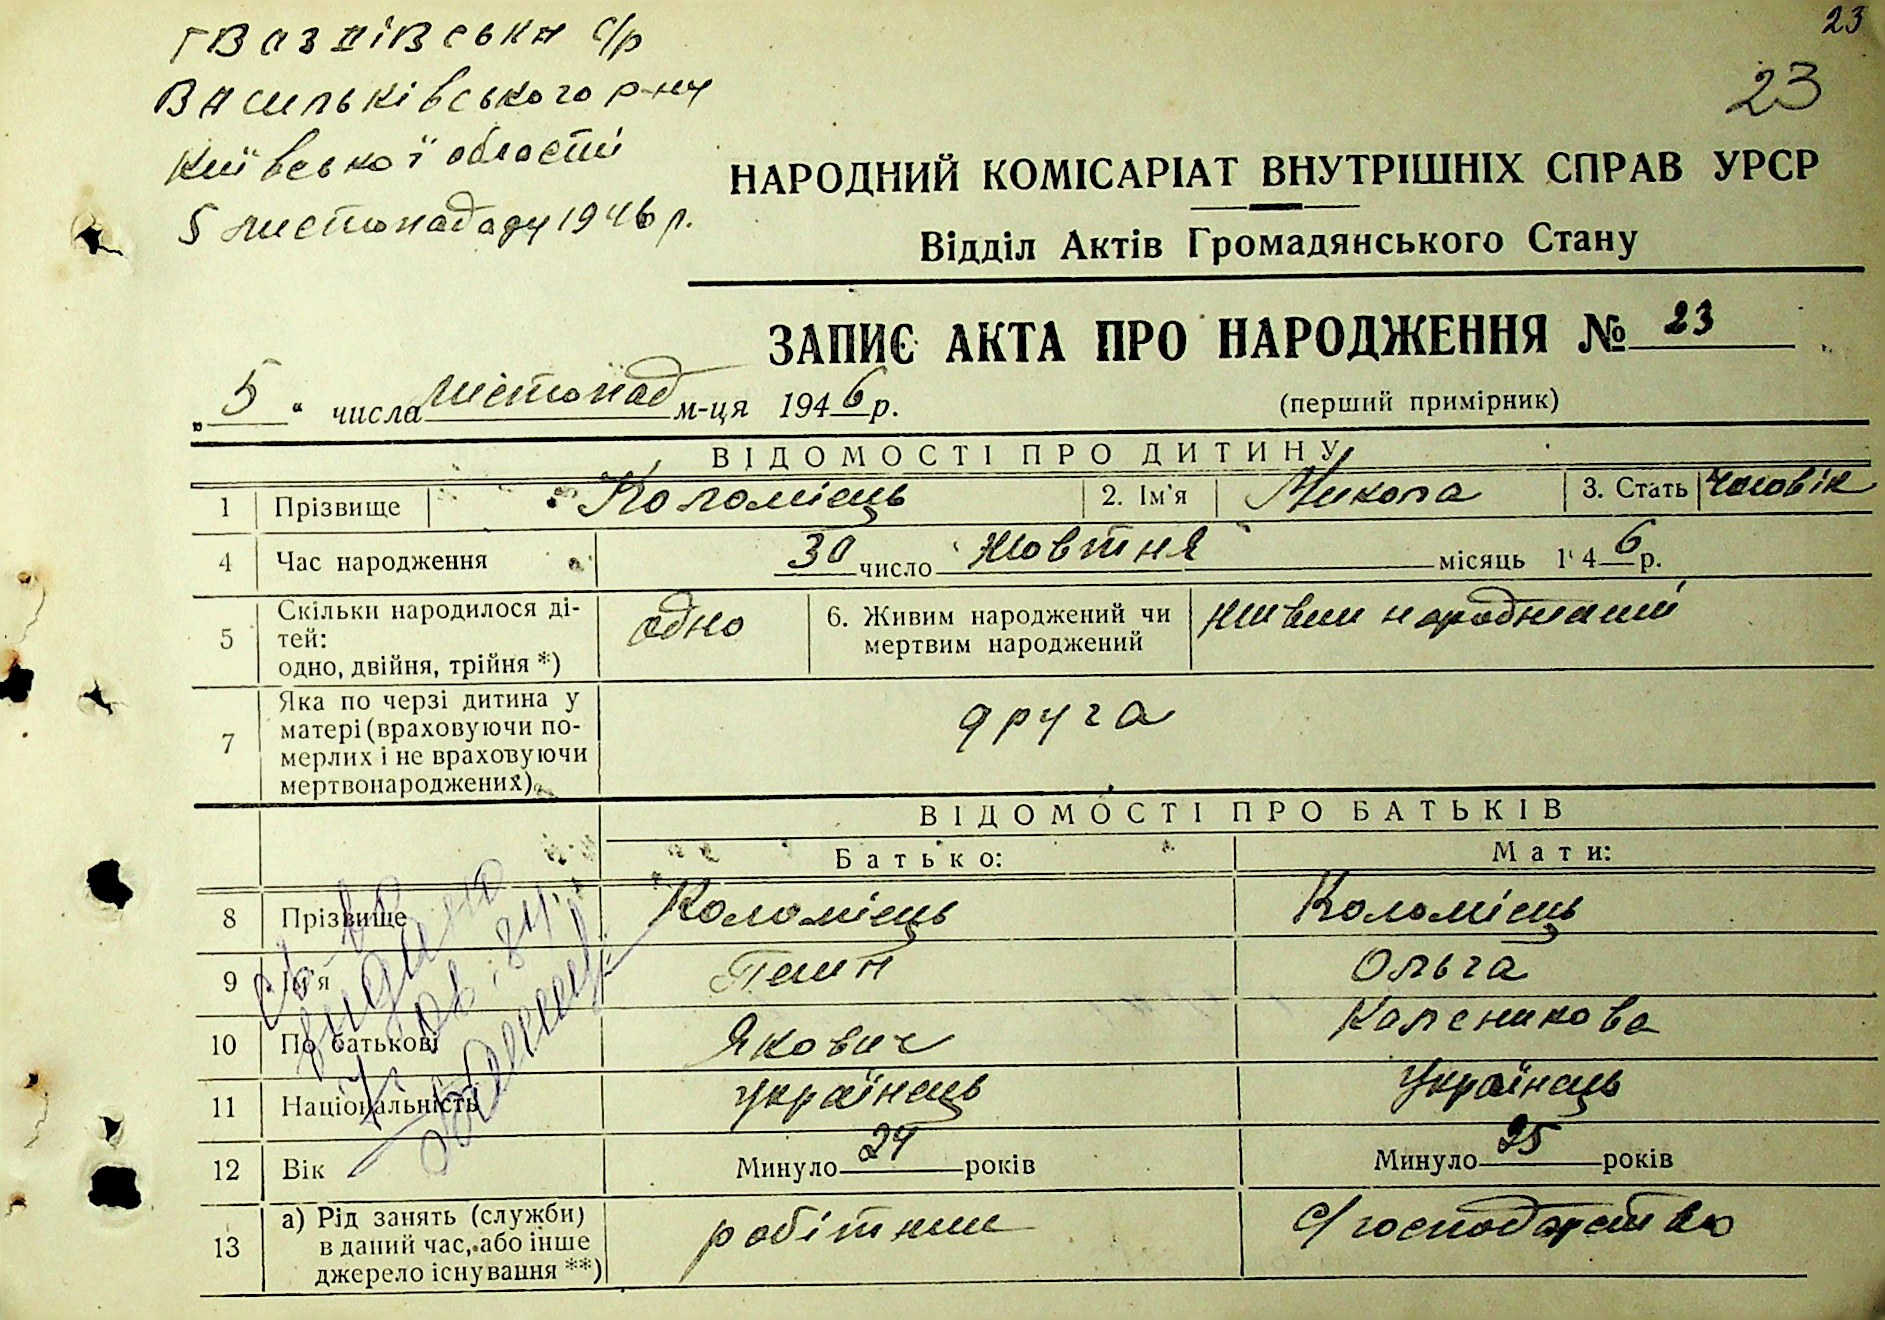 23
23
Гваздівська с/р
Васильківського р-ну
Київської області
5 листопададу 1946 р.
НАРОДНИЙ КОМІСАРІАТ ВНУТРІШНІХ СПРАВ УРСР
Відділ Актів Громадянського Стану
ЗАПИС АКТА ПРО НАРОДЖЕННЯ № 23
„5“ числа листопад м-ця 1946 р.
(перший примірник)
ВІДОМОСТІ ПРО ДИТИНУ
1 Прізвище Коломієць 2. Ім'я Микола 3. Стать Чоловік
4 Час народження 30 число Жовтня місяць 1946 р.
5 Скільки народилося ді-
тей:
одно, двійня, трійня *) одно
6. Живим народжений чи
мертвим народжений живим народжаний
7 Яка по черзі дитина у
матері (враховуючи по-
мерлих і не враховуючи
мертвонароджених) друга
ВІДОМОСТІ ПРО БАТЬКІВ
Батько: Мати:
8 Прізвище Коломієць Коломієць
9 Ім'я Ольга
10 По батькові Якович Каленикова
11 Національність Українець Українець
12 Вік Минуло 24 років Минуло 25 років
13 а) Рід занять (служби)
в даний час, або інше
джерело існування **) робітник с/господарство
видано